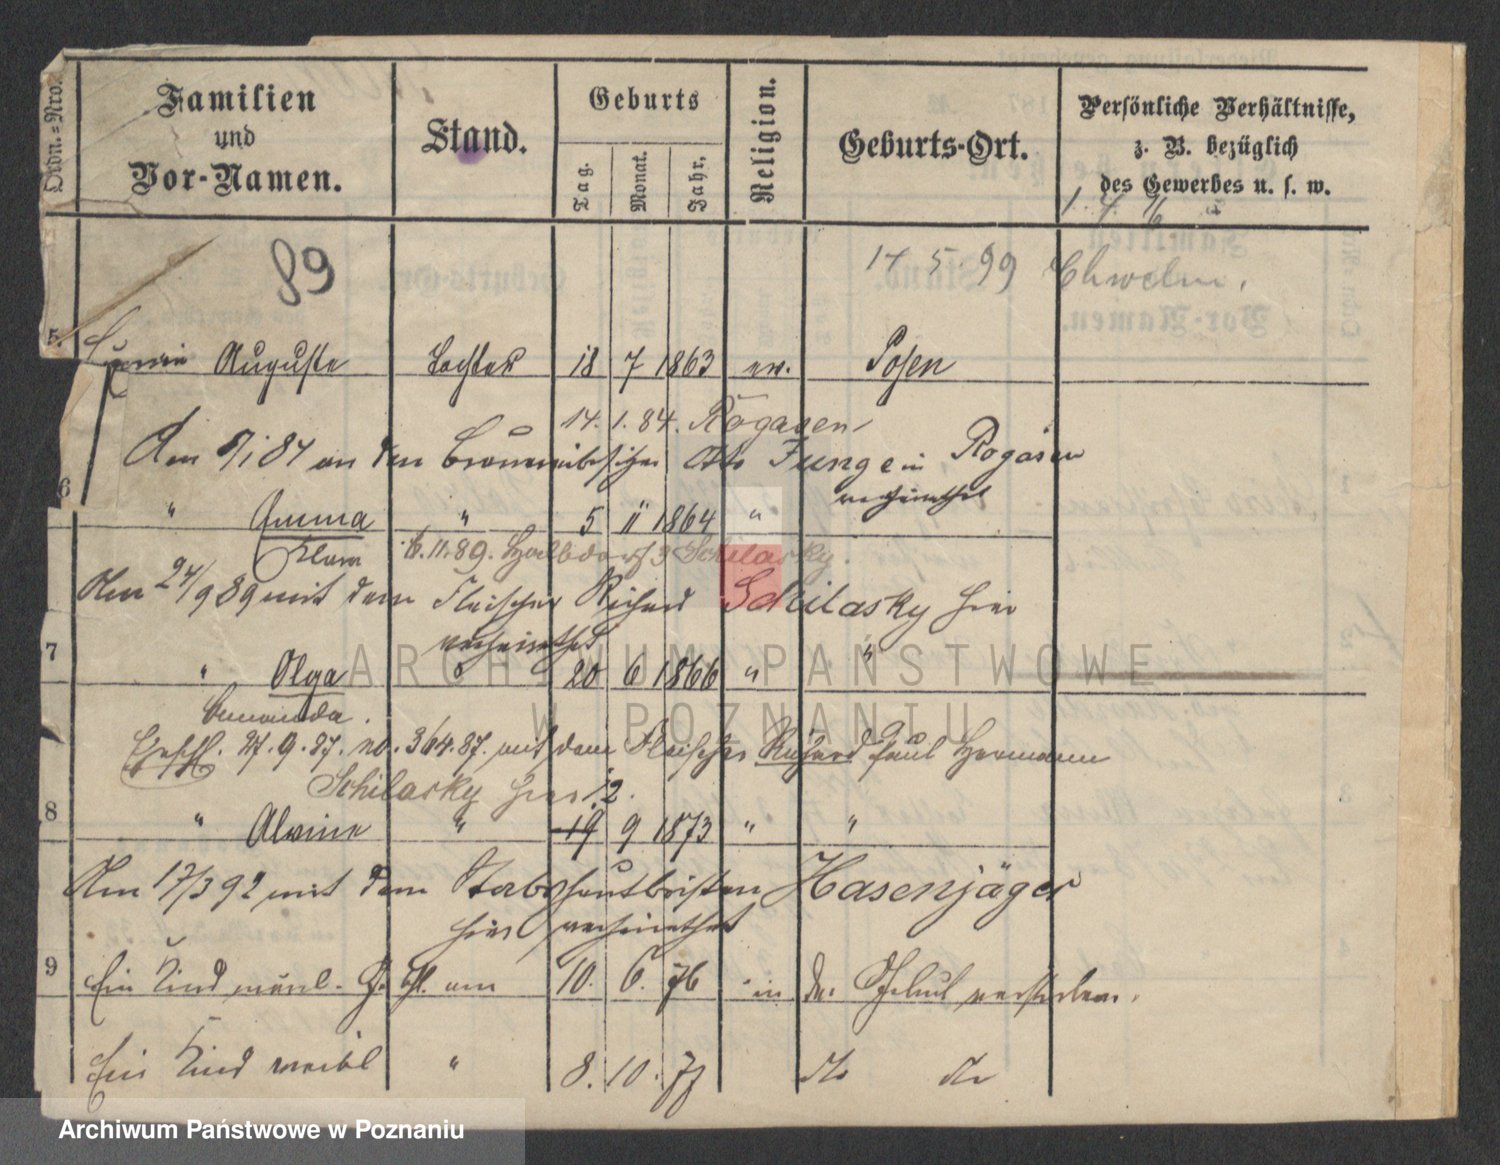 Ordn.=Nro.
Familien
und
Vor-Namen.
Stand.
Geburts
Tag.
Monat.
Jahr.
Religion.
Geburts-Ort.
Persönliche Verhältnisse,
z. B. bezüglich
des Gewerbes u. s. w.
89
17 5. 99
5.
Auguste Tochter 18 7 1863 ev. Posen
14. 1. 84. Rogasen
Am an den Otto Junge in Rogasen
verheirathet
6
" Emma " 5 11 1864 "
Clara 6.11.89. Schilasky.
Am 24/9 89 mit dem Fleischer Richard Schilasky hier
verheirathet
7
" Olga " 20 6 1866 " "
Amanda.
Ehesch. 27.9.87. no. 364.87. mit dem Fleischer Richard Paul Hermann
Schilasky hier
12.
8
" Alwine " 19 9 1873 " "
Am 17/3 92 mit dem Stabshautboisten Hasenjäger
hier verheirathet
9
Ein Kind männl. G. am 10. 6. 76 in der verstorben.
Ein Kind weibl " 8. 10. 77 do do
ARCHIWUM PAŃSTWOWE
W POZNANIU
Archiwum Państwowe w Poznaniu